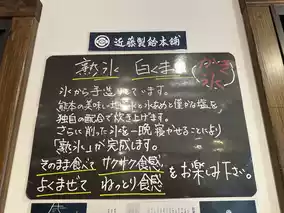 近藤製飴本舗
熟氷 白くま
かき氷
氷から手造りしています。
熊本の美味しい地下水と水あめと僅かな塩を、
独自の配合で炊き上げます。
さらに削った氷を一晩寝かせることにより
「熟氷」が完成します。
そのまま食べて サクサク食感
よくまぜて ねっとり食感
をお楽しみ下さい。